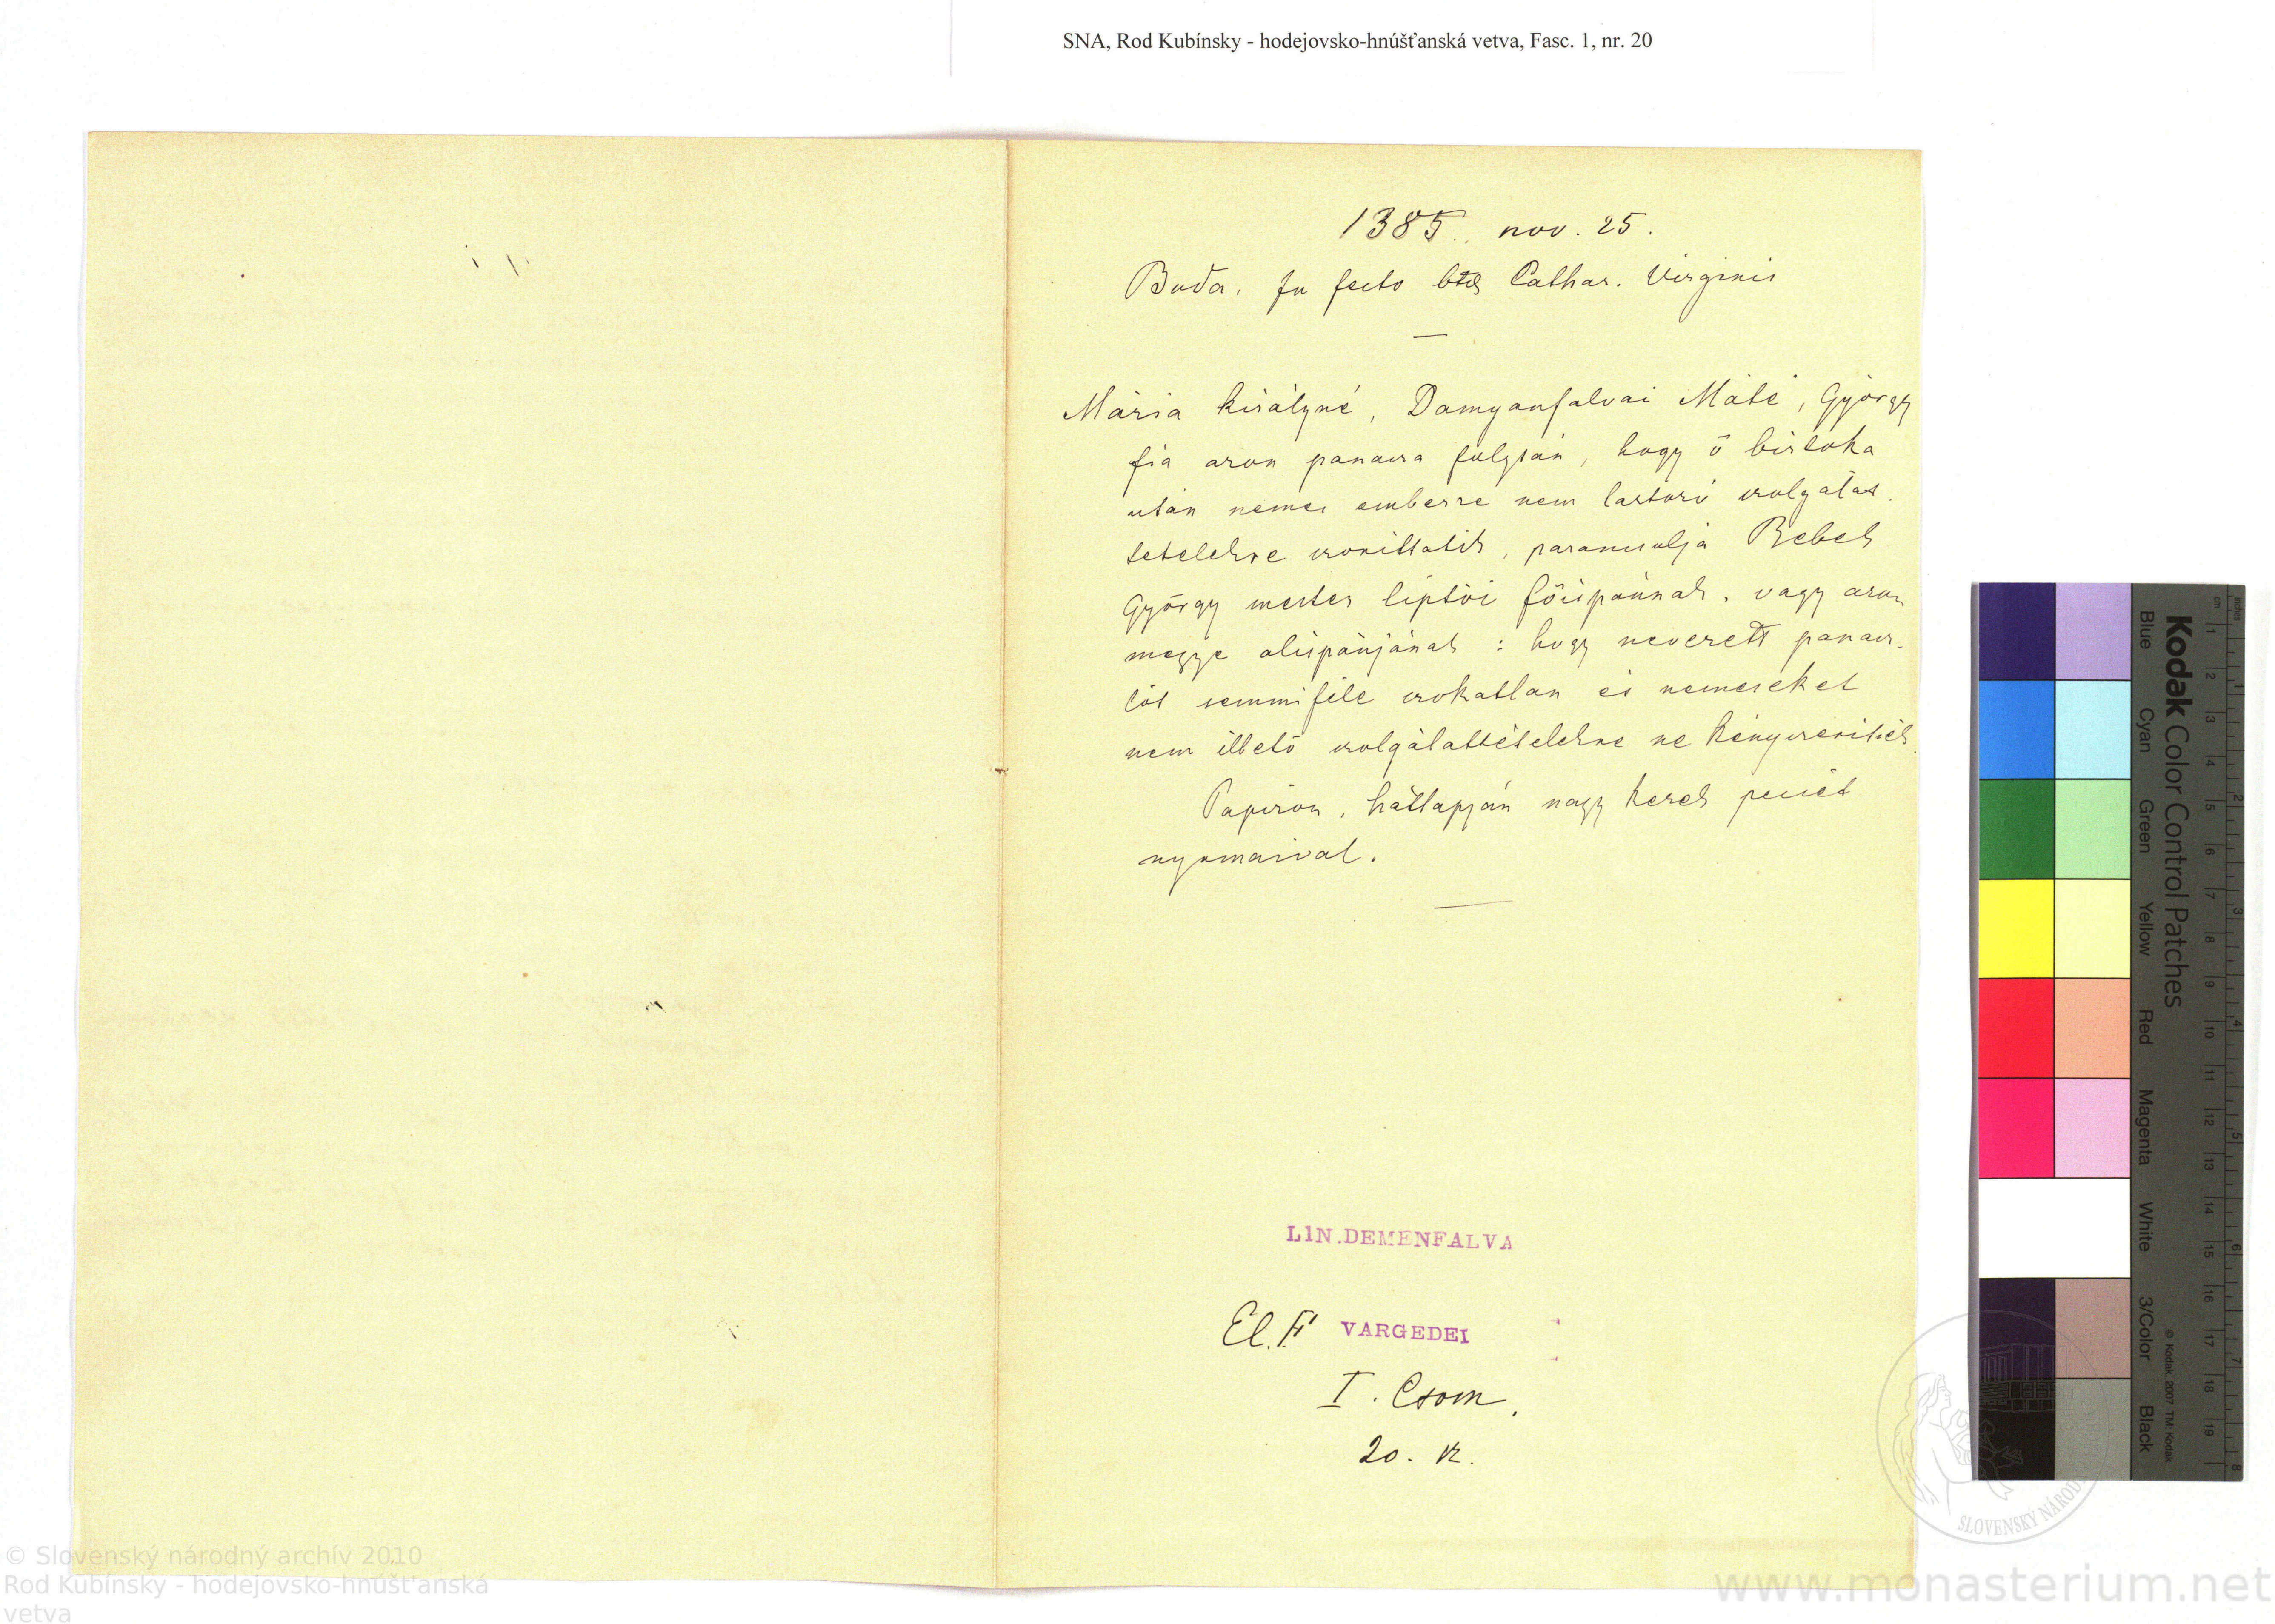 SNA, Rod Kubínsky - hodejovsko-hnúšťanská vetva, Fasc. 1, nr. 20
1385. nov. 25.
Buda. In festo btæ Cathar. Virginis
Mária királyné, Damyanfalvai Máté, György
fia azon panasza folytán, hogy ő birtoka
után nemes emberre nem tartozó szolgálat-
tételekre szoríttatik, parancsolja Bebek
György mester liptói főispánnak, vagy azon
megye alispánjának: hogy nevezett panasz-
lót semmiféle szokatlan és nemeseket
nem illető szolgálattételekre ne kényszerítsék.
Papíron, hátlapján nagy kerek pecsét
nyomaival.
LIN.DEMENFALVA
El. F. VARGEDEI
I. Csom.
20. sz.
Kodak Color Control Patches
Blue Cyan Green Yellow Red Magenta White 3/Color Black
© Kodak, 2007 TM: Kodak
inches 1 2 3 4 5 6 7 8
cm 1 2 3 4 5 6 7 8 9 10 11 12 13 14 15 16 17 18 19
SLOVENSKÝ NÁROD
© Slovenský národný archív 2010
Rod Kubínsky - hodejovsko-hnúšt'anská
vetva
www.monasterium.net